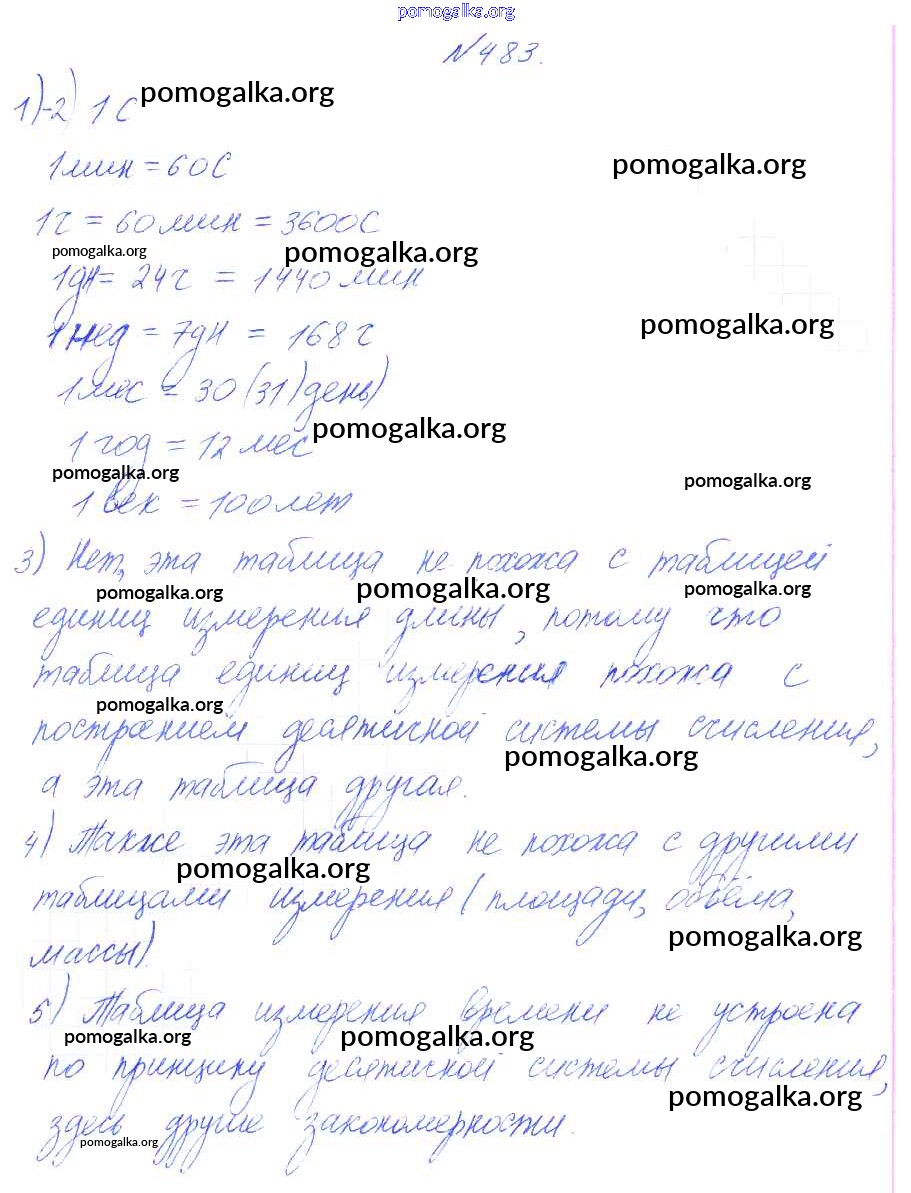 pomogalka.org
№483.
1)-2) 1 С pomogalka.org
1мин = 60С
pomogalka.org
1ч = 60мин = 3600С
pomogalka.org pomogalka.org
1дн= 24ч = 1440мин
1нед = 7дн = 168ч
pomogalka.org
1мес = 30(31)день)
1год = 12 мес pomogalka.org
pomogalka.org pomogalka.org
1 век = 100лет
3) Нет, эта таблица не похожа с таблицей
pomogalka.org pomogalka.org pomogalka.org
единиц измерения длины, потому что
таблица единиц измерения похожа с
pomogalka.org
построением десятичной системы счисления,
pomogalka.org
а эта таблица другая.
4) Также эта таблица не похожа с другими
pomogalka.org
таблицами измерения (площади, объёма,
pomogalka.org
массы).
5) Таблица измерения времени не устроена
pomogalka.org pomogalka.org
по принципу десятичной системы счисления,
pomogalka.org
здесь другие закономерности.
pomogalka.org